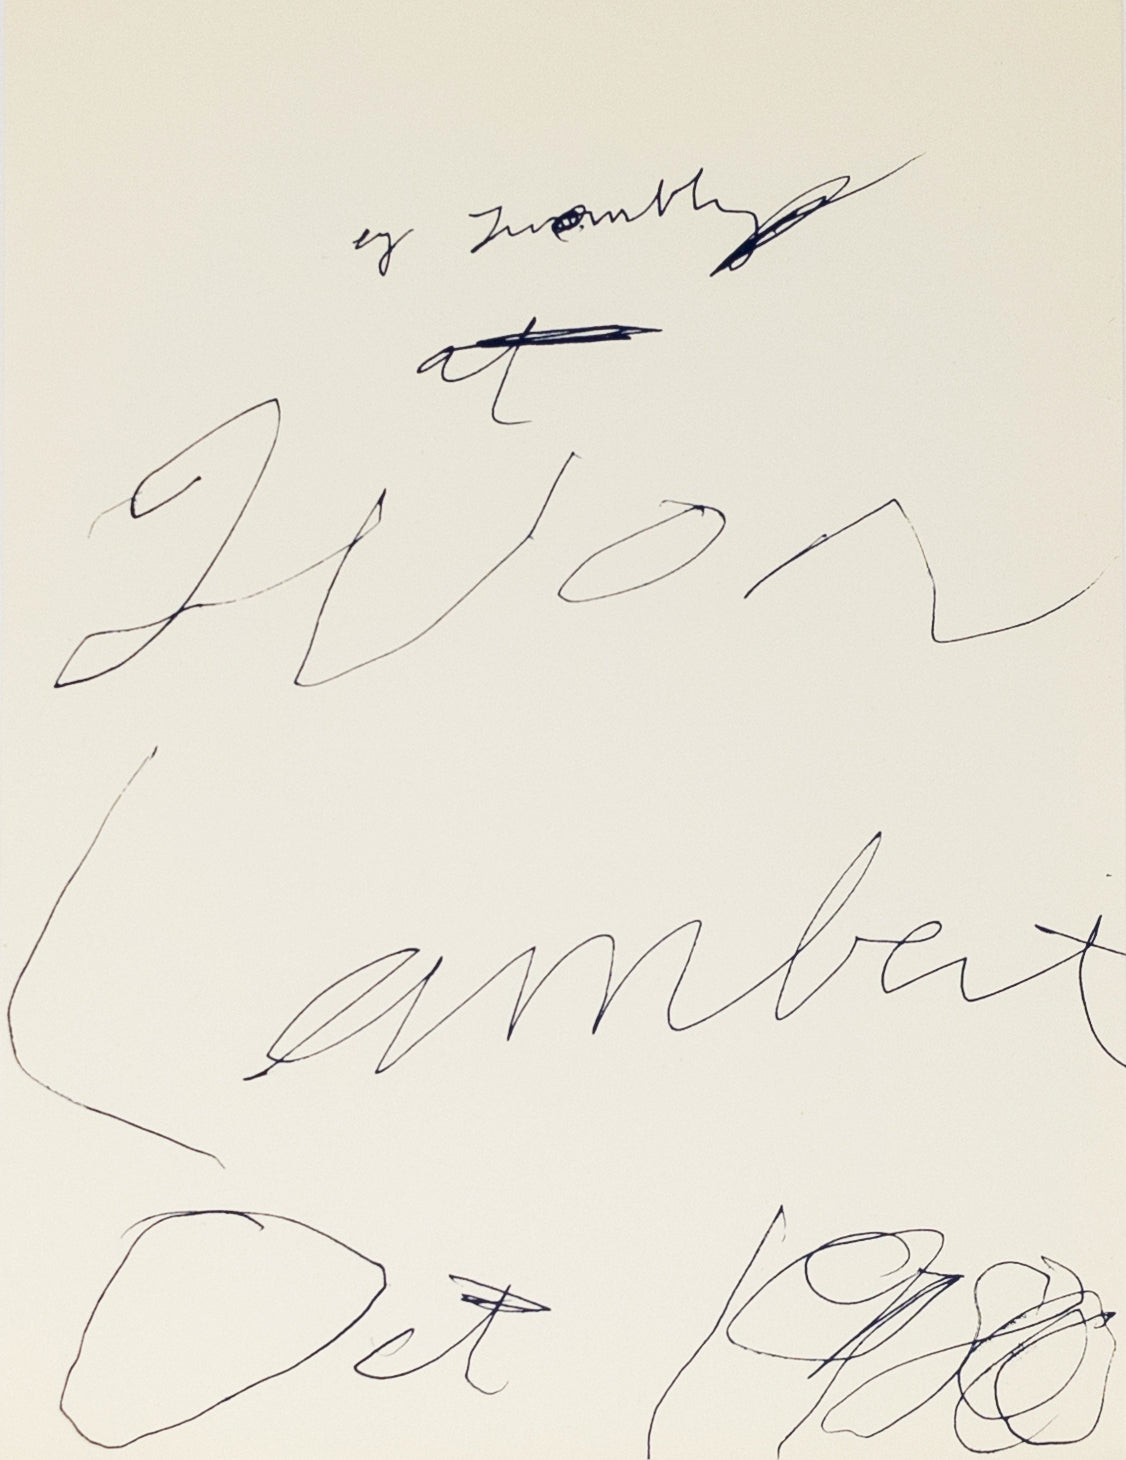 cy Twombly
at
Yvon
Lambert
Oct 1980